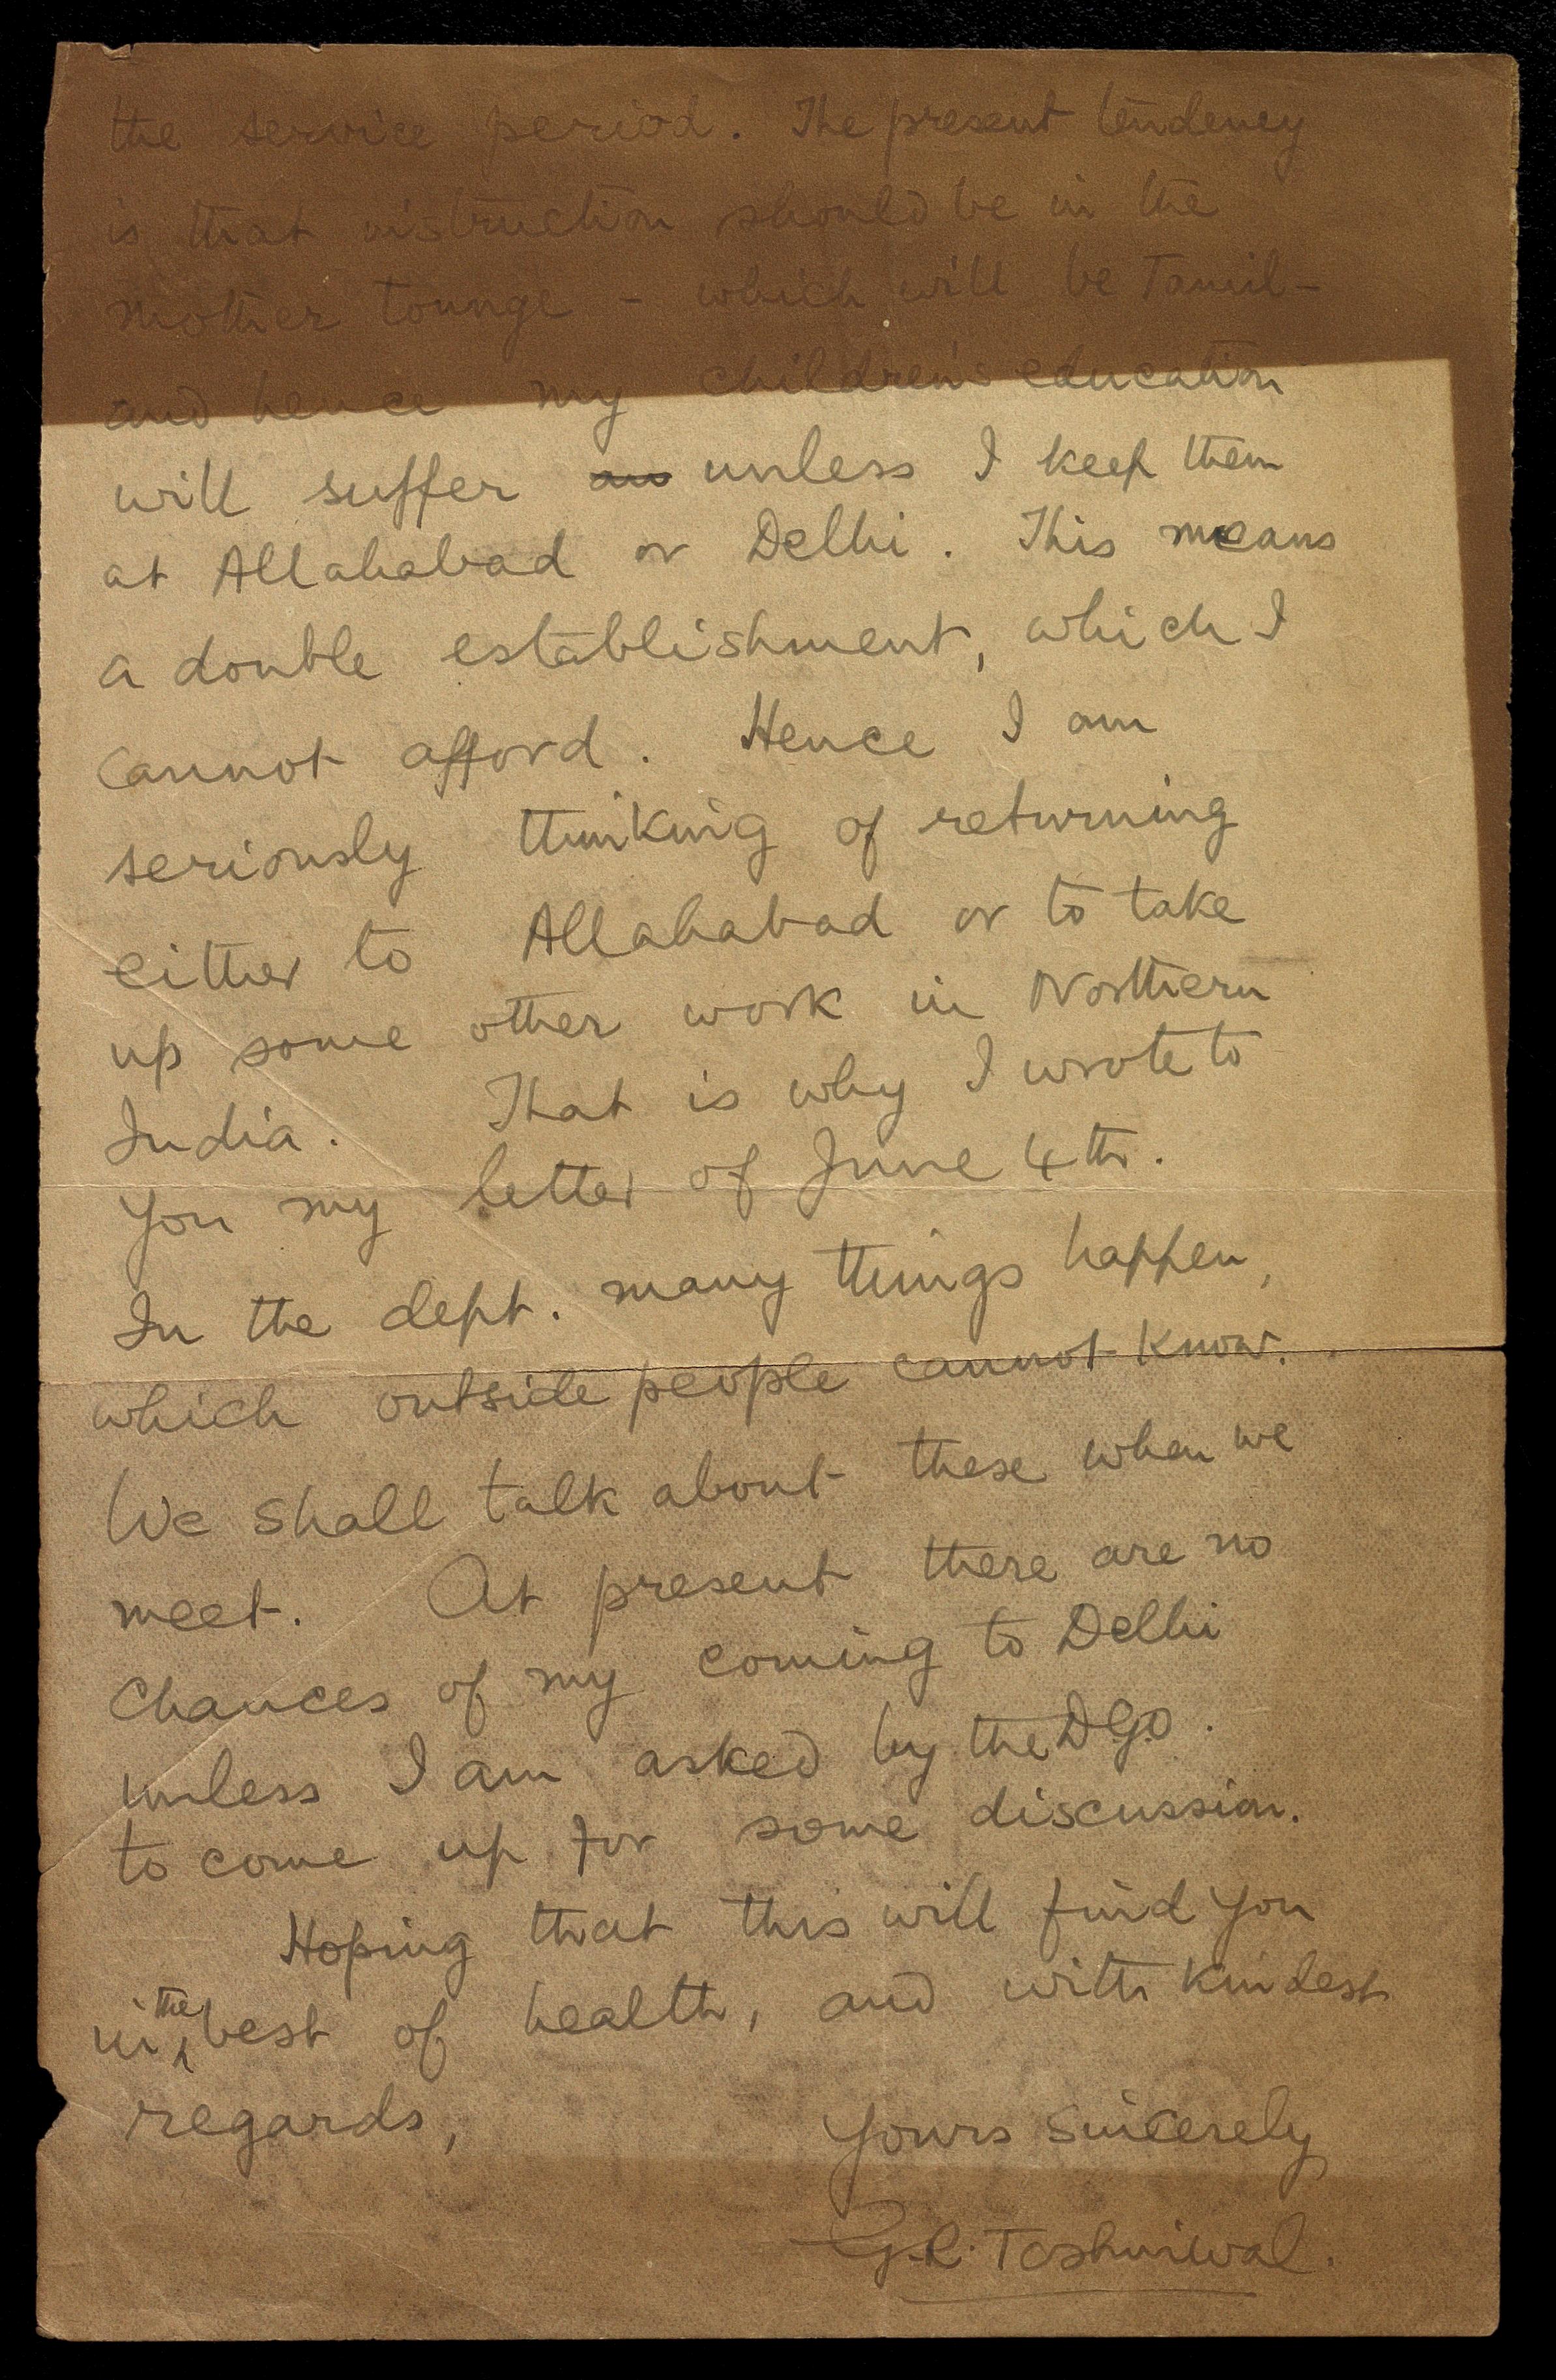 the service period. The present tendency
is that instruction should be in the
mother tounge - which will be Tamil -
and hence my children's education
will suffer an unless I keep them
at Allahabad or Delhi. This means
a double establishment, which I
cannot afford. Hence I am
seriously thinking of returning
either to Allahabad or to take
up some other work in Northern
India. That is why I wrote to
you my letter of June 4th.
In the dept. many things happen,
which outside people cannot know.
We shall talk about these when we
meet. At present there are no
chances of my coming to Delhi
unless I am asked by the D.G.O.
to come up for some discussion.
Hoping that this will find you
in the best of health, and with kindest
regards,
Yours Sincerely
G.R. Toshniwal.